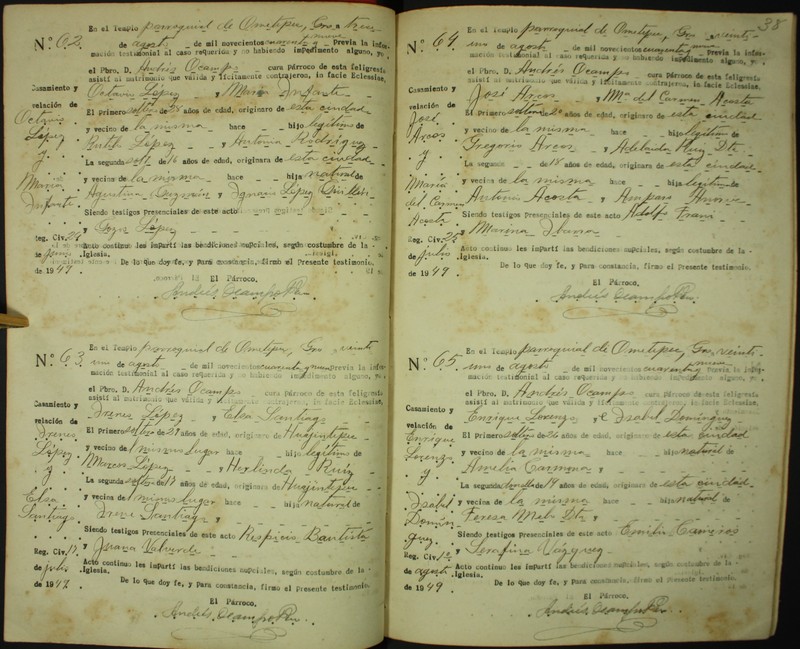 En el Templo parroquial de Ometepec, Gro. trece
Nº 62. de agosto de mil novecientos cuarenta y nueve Previa la infor-
mación testimonial al caso requerida y no habiendo impedimento alguno, yo,
el Pbro. D. Andrés Ocampo cura Párroco de esta feligresía
asistí al matrimonio que válida y lícitamente contrajeron, in facie Ecclesiae,
Casamiento y
Octavio López y María Infante
velación de
El Primero soltero de años de edad, originaro de esta ciudad
Octavio
López
y vecino de la misma hace hijo legítimo de
López y Antonia Rodríguez
y
La segunda solt. de 16 años de edad, originara de esta ciudad
María
Infante
y vecina de la misma hace hija natural de
Agustina y Ignacio López Guillén
Siendo testigos Presenciales de este acto
y López
Reg. Civ.
Acto continuo les impartí las bendiciones nupciales, según costumbre de la
de Iglesia.
De lo que doy fe, y Para constancia, firmo el Presente testimonio.
de 1949.
El Párroco.
Andrés Ocampo Pbro.
En el Templo parroquial de Ometepec, Gro. veinti
Nº 63 uno de agosto de mil novecientos cuarenta y nueve Previa la infor-
mación testimonial al caso requerida y no habiendo impedimento alguno, yo,
el Pbro. D. Andrés Ocampo cura Párroco de esta feligresía
asistí al matrimonio que válida y lícitamente contrajeron, in facie Ecclesiae,
Casamiento y
Ireneo López y Elsa Santiago
velación de
El Primero soltero de 21 años de edad, originaro de Huajintepec
Ireneo
López
y vecino de l mismo lugar hace hijo legítimo de
Marcos López y Herlinda Ruiz
y
La segunda soltera de 17 años de edad, originara de Huajintepec
Elsa
Santiago
y vecina de l mismo lugar hace hija natural de
Irene Santiago y
Siendo testigos Presenciales de este acto Respicio Bautista
y Juana Valverde
Reg. Civ. 17
Acto continuo les impartí las bendiciones nupciales, según costumbre de la
de julio Iglesia.
De lo que doy fe, y Para constancia, firmo el Presente testimonio.
de 1947
El Párroco.
Andrés Ocampo Pbro.
38
En el Templo parroquial de Ometepec, Gro. veinti
Nº 64. uno de agosto de mil novecientos cuarenta y nueve Previa la infor-
mación testimonial al caso requerida y no habiendo impedimento alguno, yo,
el Pbro. D. Andrés Ocampo cura Párroco de esta feligresía
asistí al matrimonio que válida y lícitamente contrajeron, in facie Ecclesiae,
Casamiento y
José Arcos y Mª del Carmen Acosta
velación de
El Primero soltero de 20 años de edad, originaro de esta ciudad
José
Arcos
y vecino de la misma hace hijo legítimo de
Gregorio Arcos y Adelaida Ruiz Dta.
y
La segunda de 18 años de edad, originara de esta ciudad
María
del Carmen
Acosta
y vecina de la misma hace hija legítima de
Antonio Acosta y Amparo
Siendo testigos Presenciales de este acto Adolfo
y Marina Ibarra
Reg. Civ. 25
Acto continuo les impartí las bendiciones nupciales, según costumbre de la
de julio Iglesia.
De lo que doy fe, y Para constancia, firmo el Presente testimonio.
de 1949
El Párroco.
Andrés Ocampo Pbro.
En el Templo parroquial de Ometepec, Gro. veinti
Nº 65. uno de agosto de mil novecientos cuarenta y nueve Previa la infor-
mación testimonial al caso requerida y no habiendo impedimento alguno, yo,
el Pbro. D. Andrés Ocampo cura Párroco de esta feligresía
asistí al matrimonio que válida y lícitamente contrajeron, in facie Ecclesiae,
Casamiento y
Enrique Lorenzo y e Isabel Domínguez
velación de
El Primero soltero de 26 años de edad, originaro de esta ciudad
Enrique
Lorenzo
y vecino de la misma hace hijo natural de
Amelia Carmona y
y
La segunda soltera de 19 años de edad, originara de esta ciudad
Isabel
Domín-
guez
y vecina de la misma hace hija natural de
Teresa Melo Dta. y
Siendo testigos Presenciales de este acto Emilio Cisneros
y Serafina Vázquez
Reg. Civ. 12
Acto continuo les impartí las bendiciones nupciales, según costumbre de la
de agosto Iglesia.
De lo que doy fe, y Para constancia, firmo el Presente testimonio.
de 1949
El Párroco.
Andrés Ocampo Pbro.